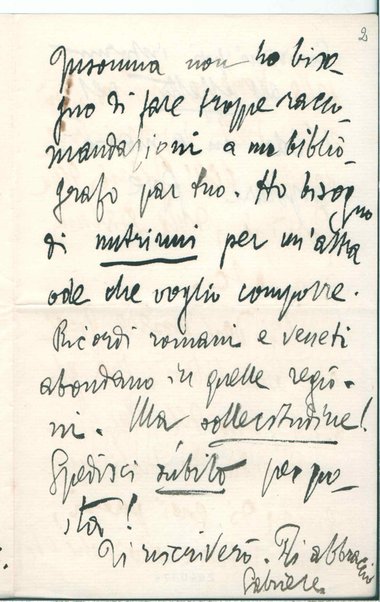 2
Insomma non ho biso-
gno di fare troppe racco-
mandazioni a un biblio-
grafo par tuo. Ho bisogno
di nutrirmi per un'altra
ode che voglio comporre.
Ricordi romani e veneti
abondano in quelle regio-
ni. Ma sollecitudine!
Spedisci subito per po-
sta!
Ti riscriverò. Ti abbraccio
Gabriele.